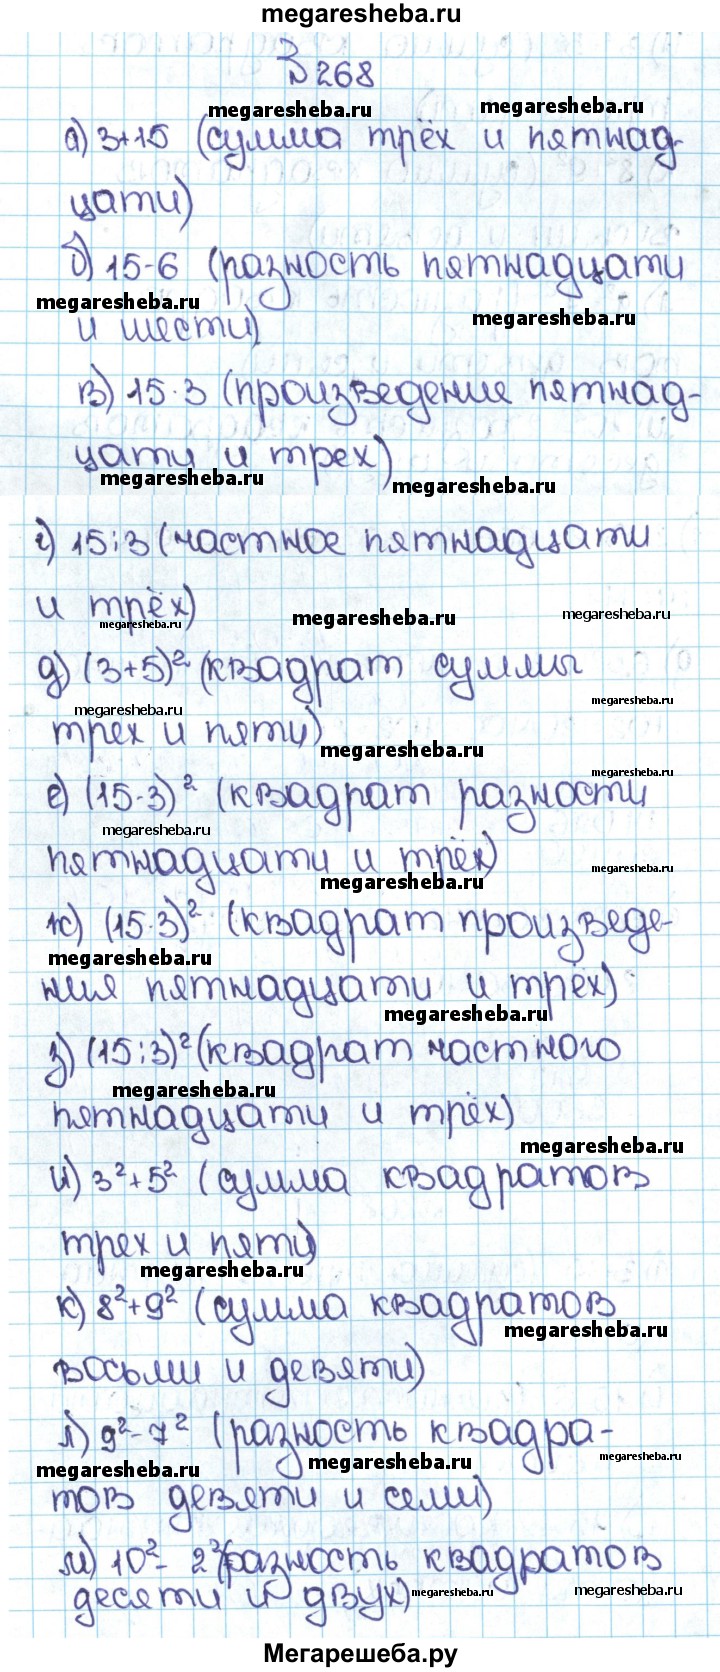 megaresheba.ru
№268
megaresheba.ru megaresheba.ru
а) 3+15 (сумма трёх и пятнад-
цати)
б) 15-6 (разность пятнадцати
megaresheba.ru megaresheba.ru
и шести)
в) 15·3 (произведение пятнад-
цати и трех)
megaresheba.ru megaresheba.ru
г) 15:3 (частное пятнадцати
и трёх)
megaresheba.ru megaresheba.ru megaresheba.ru
д) (3+5)² (квадрат суммы
megaresheba.ru megaresheba.ru
трех и пяти)
megaresheba.ru
megaresheba.ru
е) (15-3)² (квадрат разности
megaresheba.ru
пятнадцати и трёх)
megaresheba.ru megaresheba.ru
ж) (15·3)² (квадрат произведе-
megaresheba.ru
ния пятнадцати и трёх)
megaresheba.ru
з) (15:3)² (квадрат частного
megaresheba.ru
пятнадцати и трёх)
megaresheba.ru
и) 3²+5² (сумма квадратов
трех и пяти)
megaresheba.ru
к) 8²+9² (сумма квадратов
megaresheba.ru
восьми и девяти)
л) 9²-7² (разность квадра-
megaresheba.ru megaresheba.ru megaresheba.ru
тов девяти и семи)
м) 10²-2² (разность квадратов
десяти и двух)
megaresheba.ru megaresheba.ru
Мегарешеба.ру